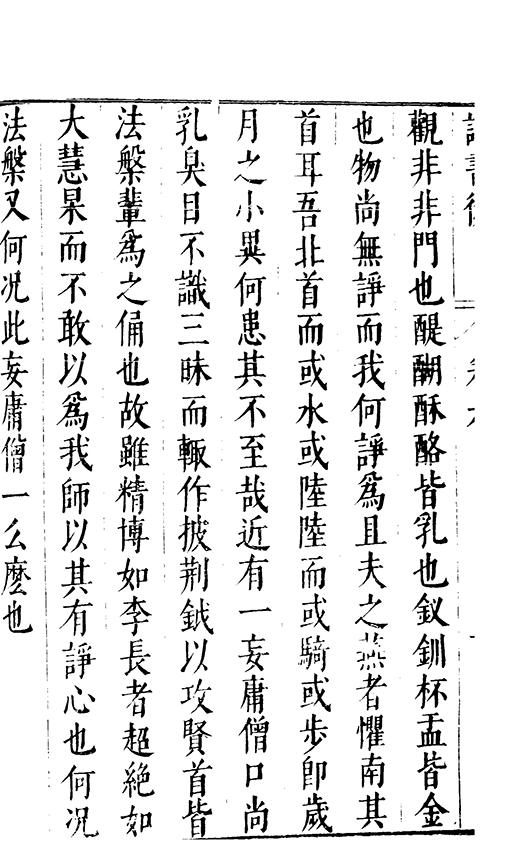 讀書後
觀非非門也醍醐酥酪皆乳也釵釧杯盂皆金
也物尚無諍而我何諍爲且夫之燕者懼南其
首耳吾北首而或水或陸陸而或騎或步卽歲
月之小異何患其不至哉近有一妄庸僧口尚
乳臭目不識三昧而輙作披荆鉞以攻賢首皆
法槃輩爲之俑也故雖精博如李長者超絶如
大慧杲而不敢以爲我師以其有諍心也何況
法槃又何况此妄庸僧一么麽也